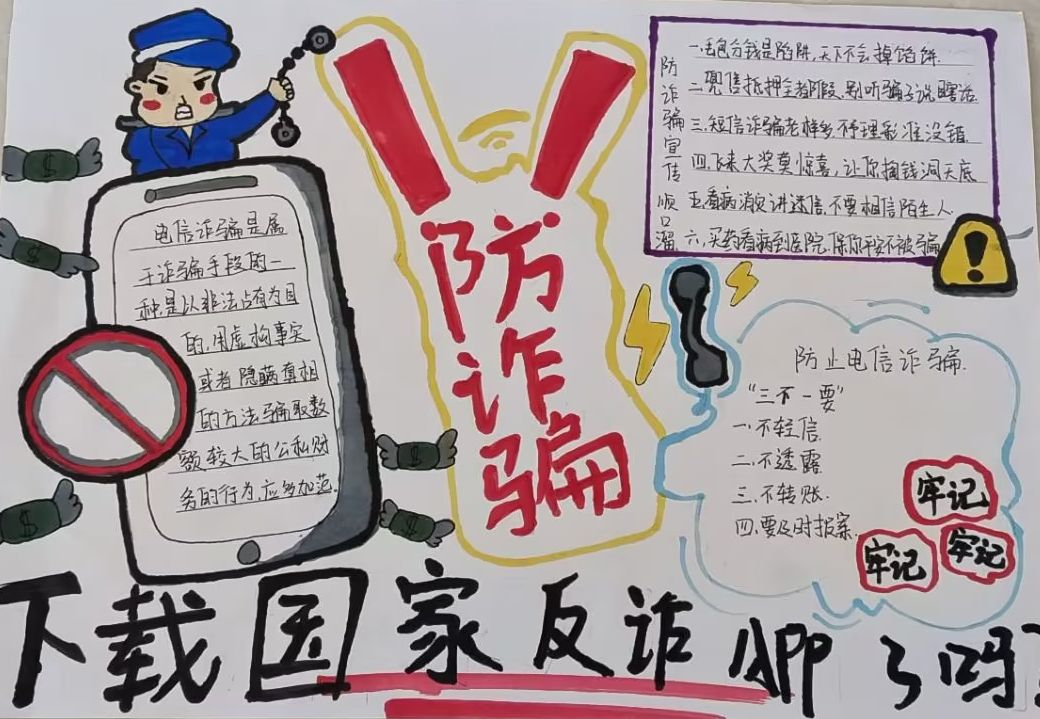 防诈骗
防诈骗宣传顺口溜
一.丢包分钱是陷阱,天下不会掉馅饼.
二.兜售抵押全都假,别听骗子说瞎话.
三.短信诈骗老样多,不理彩准没错.
四.飞来大奖莫惊喜,让你掏钱洞天底
五.看病消灾讲迷信,不要相信陌生人.
六.买药看病到医院.保你平安不被骗
电信诈骗是属
于诈骗手段的一
种.是以非法占有为目
的.用虚构事实
或者隐瞒真相
的方法骗取数
额较大的公私财
务的行为.应多加范.
防止电信诈骗.
"三不一要"
一.不轻信.
二.不透露
三.不转账.
四.要及时报案.
牢记
牢记
牢记
下载国家反诈APP了吗?
$
$
$
$
$